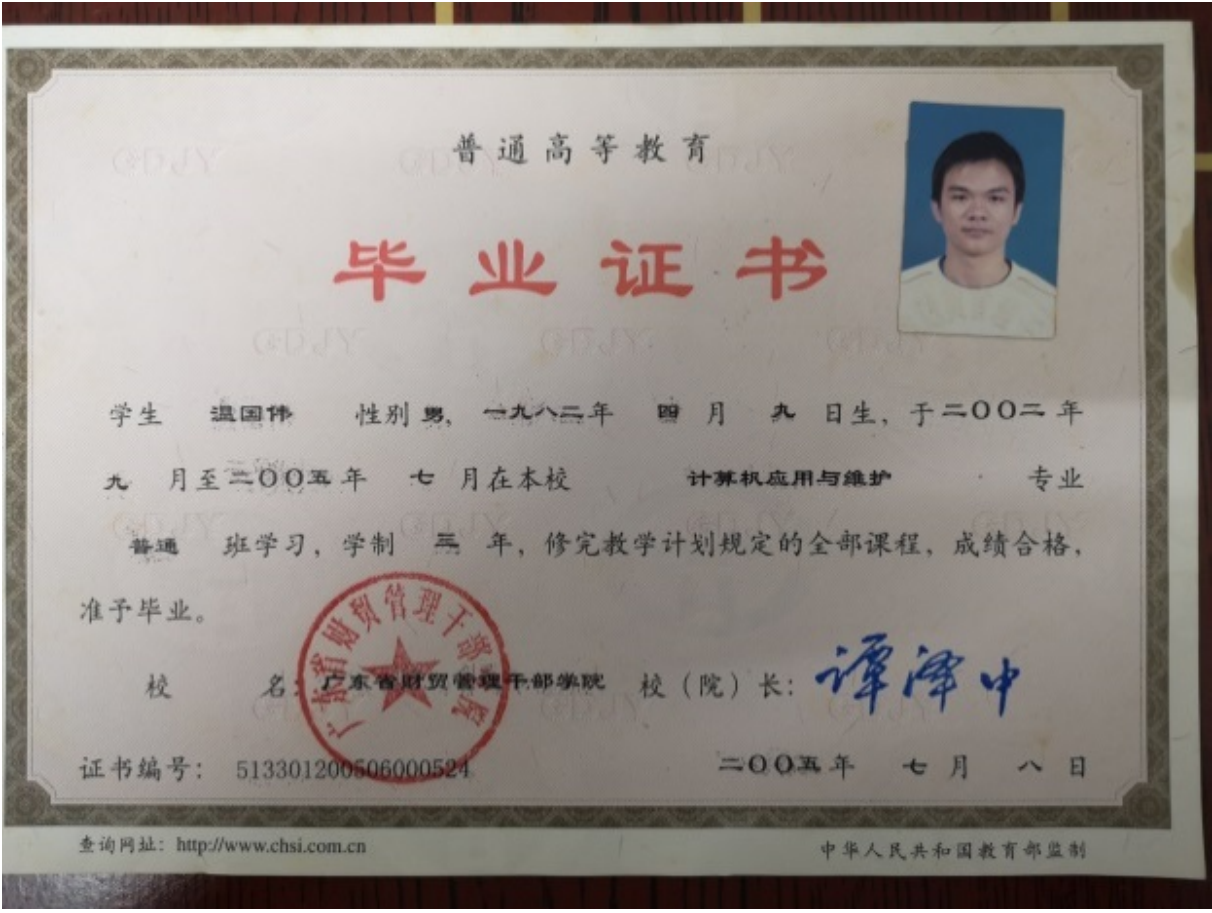 普通高等教育
毕业证书
学生 温国伟 性别 男, 一九八二年 四 月 九 日生, 于二〇〇二年
九 月至二〇〇五年 七 月在本校 计算机应用与维护 专业
普通 班学习, 学制 三 年, 修完教学计划规定的全部课程, 成绩合格,
准予毕业。
校 名: 广东省财贸管理干部学院 校(院)长: 谭泽中
广东省财贸管理干部学院
证书编号: 513301200506000524 二〇〇五年 七 月 八 日
查询网址: http://www.chsi.com.cn 中华人民共和国教育部监制